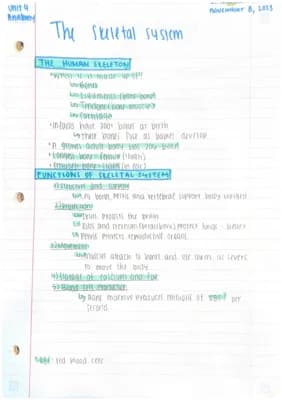 Unit 4
Anatomy
November 8, 2023
The Skeletal System
THE HUMAN SKELETON
• What is it made up of?
↳ Bones
↳ Ligaments (bone-bone)
↳ Tendons (bone-muscle)
↳ Cartilage
• Infants have 300+ bones at birth
↳ their bones fuse as babies develop
• A grown adult body has 206 bones
• Longest bone- femur (thigh)
FUNCTIONS OF SKELETAL SYSTEM
1) Structure and support
↳ bones, pelvis and vertebral support body
2) Protection
↳ Skull protects the brain
↳ Ribs and sternum protect lungs
↳ Pelvis protects reproductive organs
3) Movement
↳ muscles attach to bones and use them as levers
to move the body
4) Storage of calcium and fat
5) Blood cell production
↳ Bone marrow produces millions of per
second
red blood cell